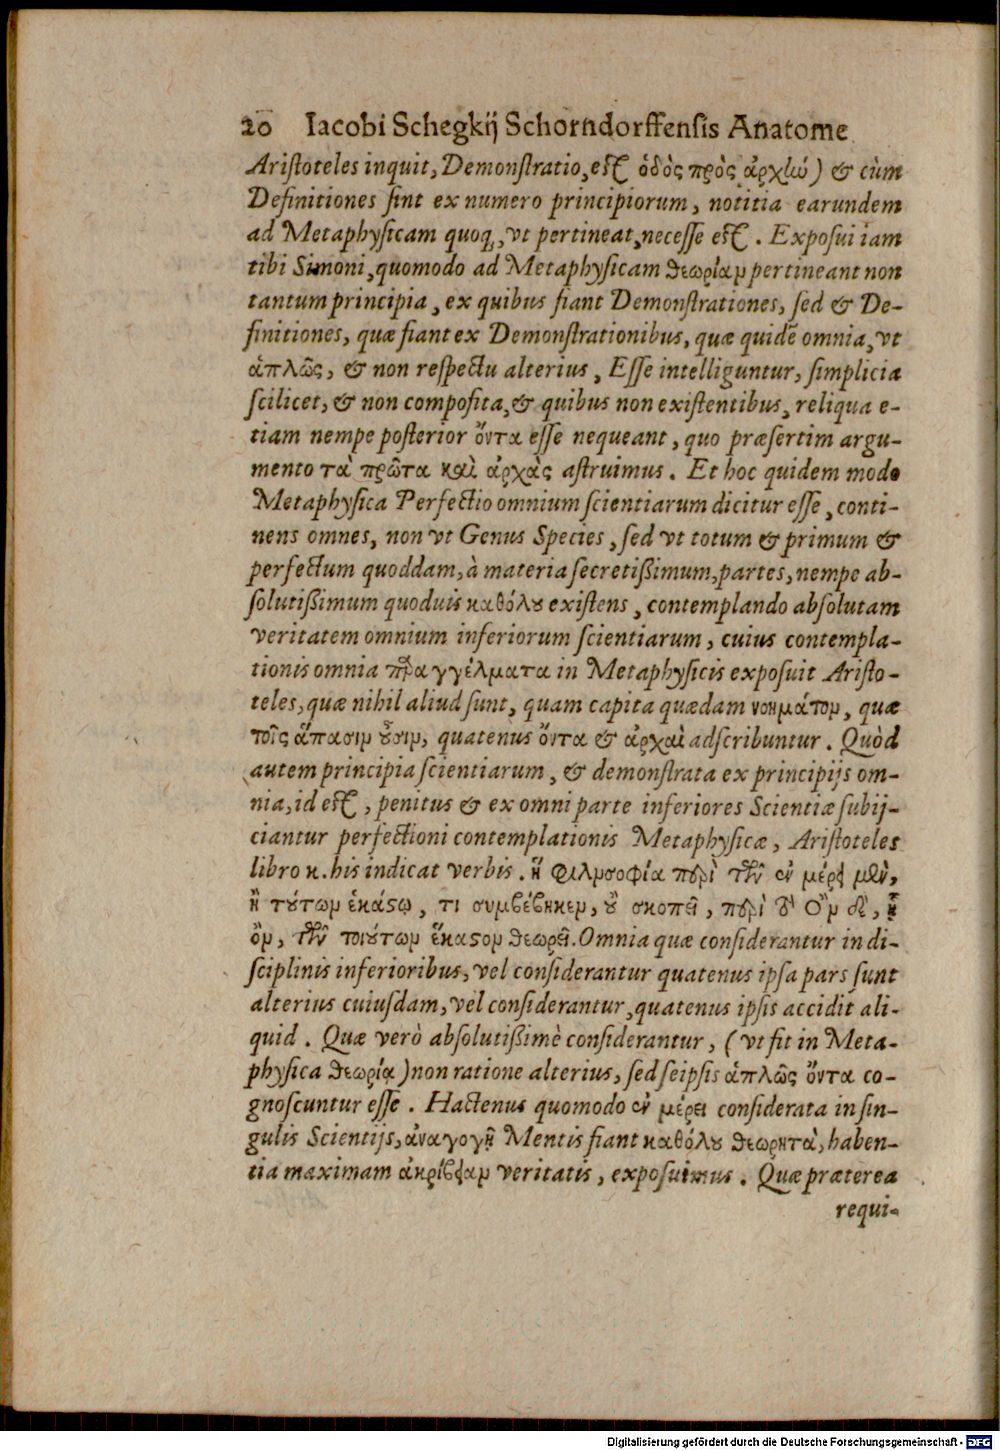 20 Iacobi Schegkij Schorndorffensis Anatome
Aristoteles inquit, Demonstratio, est ὁδὸς πρὸς ἀρχἰω) & cùm
Definitiones sint ex numero principiorum, notitia earundem
ad Metaphysicam quoq, vt pertineat, necesse est. Exposui iam
tibi Simoni, quomodo ad Metaphysicam θεωρίαμ pertineant non
tantum principia, ex quibus fiant Demonstrationes, sed & De-
finitiones, quæ fiant ex Demonstrationibus, quæ quidē omnia, vt
ἁπλῶς, & non respectu alterius, Esse intelliguntur, simplicia
scilicet, & non composita, & quibus non existentibus, reliqua e-
tiam nempe posterior ὄντα esse nequeant, quo præsertim argu-
mento τὰ πρῶτα καὶ ἀρχὰς astruimus. Et hoc quidem modo
Metaphysica Perfectio omnium scientiarum dicitur esse, conti-
nens omnes, non vt Genus Species, sed vt totum & primum &
perfectum quoddam, à materia secretißimum, partes, nempe ab-
solutißimum quoduis καθόλȣ existens, contemplando absolutam
veritatem omnium inferiorum scientiarum, cuius contempla-
tionis omnia πραγγέλματα in Metaphysicis exposuit Aristo-
teles, quæ nihil aliud sunt, quam capita quædam νοημάτομ, quæ
τοῖς ἅπασιμ ȣ̓σιμ, quatenus ὄντα & ἀρχαὶ adscribuntur. Quòd
autem principia scientiarum, & demonstrata ex principijs om-
nia, id est, penitus & ex omni parte inferiores Scientiæ subij-
ciantur perfectioni contemplationis Metaphysicæ, Aristoteles
libro κ. his indicat verbis. ἡ φιλμσοφία περὶ τῶν ἐν μέρει μὲν,
ἢ τȣ́τωμ ἑκάϛῳ, τι συμβέβηκεμ, ȣ̓ σκοπεῖ, περὶ τὸ ὂμ δὲ, ᾗ
ὂμ, τῶν τοιȣ́τωμ ἕκαϛομ θεωρεῖ. Omnia quæ considerantur in di-
sciplinis inferioribus, vel considerantur quatenus ipsa pars sunt
alterius cuiusdam, vel considerantur, quatenus ipsis accidit ali-
quid. Quæ verò absolutißimè considerantur, (vt fit in Meta-
physica θεωρίᾳ) non ratione alterius, sed seipsis ἁπλῶς ὄντα co-
gnoscuntur esse. Hactenus quomodo ἐν μέρει considerata in sin-
gulis Scientijs, ἀναγογῇ Mentis fiant καθόλȣ θεωρητὰ, haben-
tia maximam ἀκρίβειαμ veritatis, exposuimus. Quæ præterea
requi-
Digitalisierung gefördert durch die Deutsche Forschungsgemeinschaft - DFG